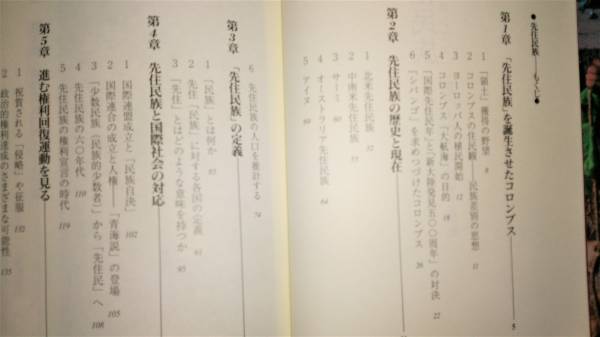 ●先住民族──もくじ●
第1章 「先住民族」を誕生させたコロンブス── 5
1 「領土」獲得の野望 8
2 コロンブスの住民観──民族差別の思想 11
3 ヨーロッパ人の植民開始 16
4 コロンブス「大航海」の目的 19
5 「国際先住民年」と「新大陸発見五〇〇周年」の対決 22
6 「ジパング」を求めつづけたコロンブス 26
第2章 先住民族の歴史と現在
1 北米先住民族 32
2 中南米先住民族
3 サーミ 60
4 オーストラリア先住民族 64
5 アイヌ 69
6 先住民族の人口を推計する 74
第3章 「先住民族」の定義
1 「民族」とは何か 85
2 先住「民族」に対する各国の定義 91
3 「先住」とはどのような意味を持つか 95
第4章 先住民族と国際社会の対応
1 国際連盟成立と「民族自決」 102
2 国際連合の成立と人権──「青海説」の登場 105
3 「少数民族(民族的少数者)」から「先住民」へ 108
4 先住民族の六〇年代 110
5 先住民族の権利宣言の時代 119
第5章 進む権利回復運動を見る
1 祝賀される「侵略」や征服 132
2 政治的権利達成のさまざまな可能性 135